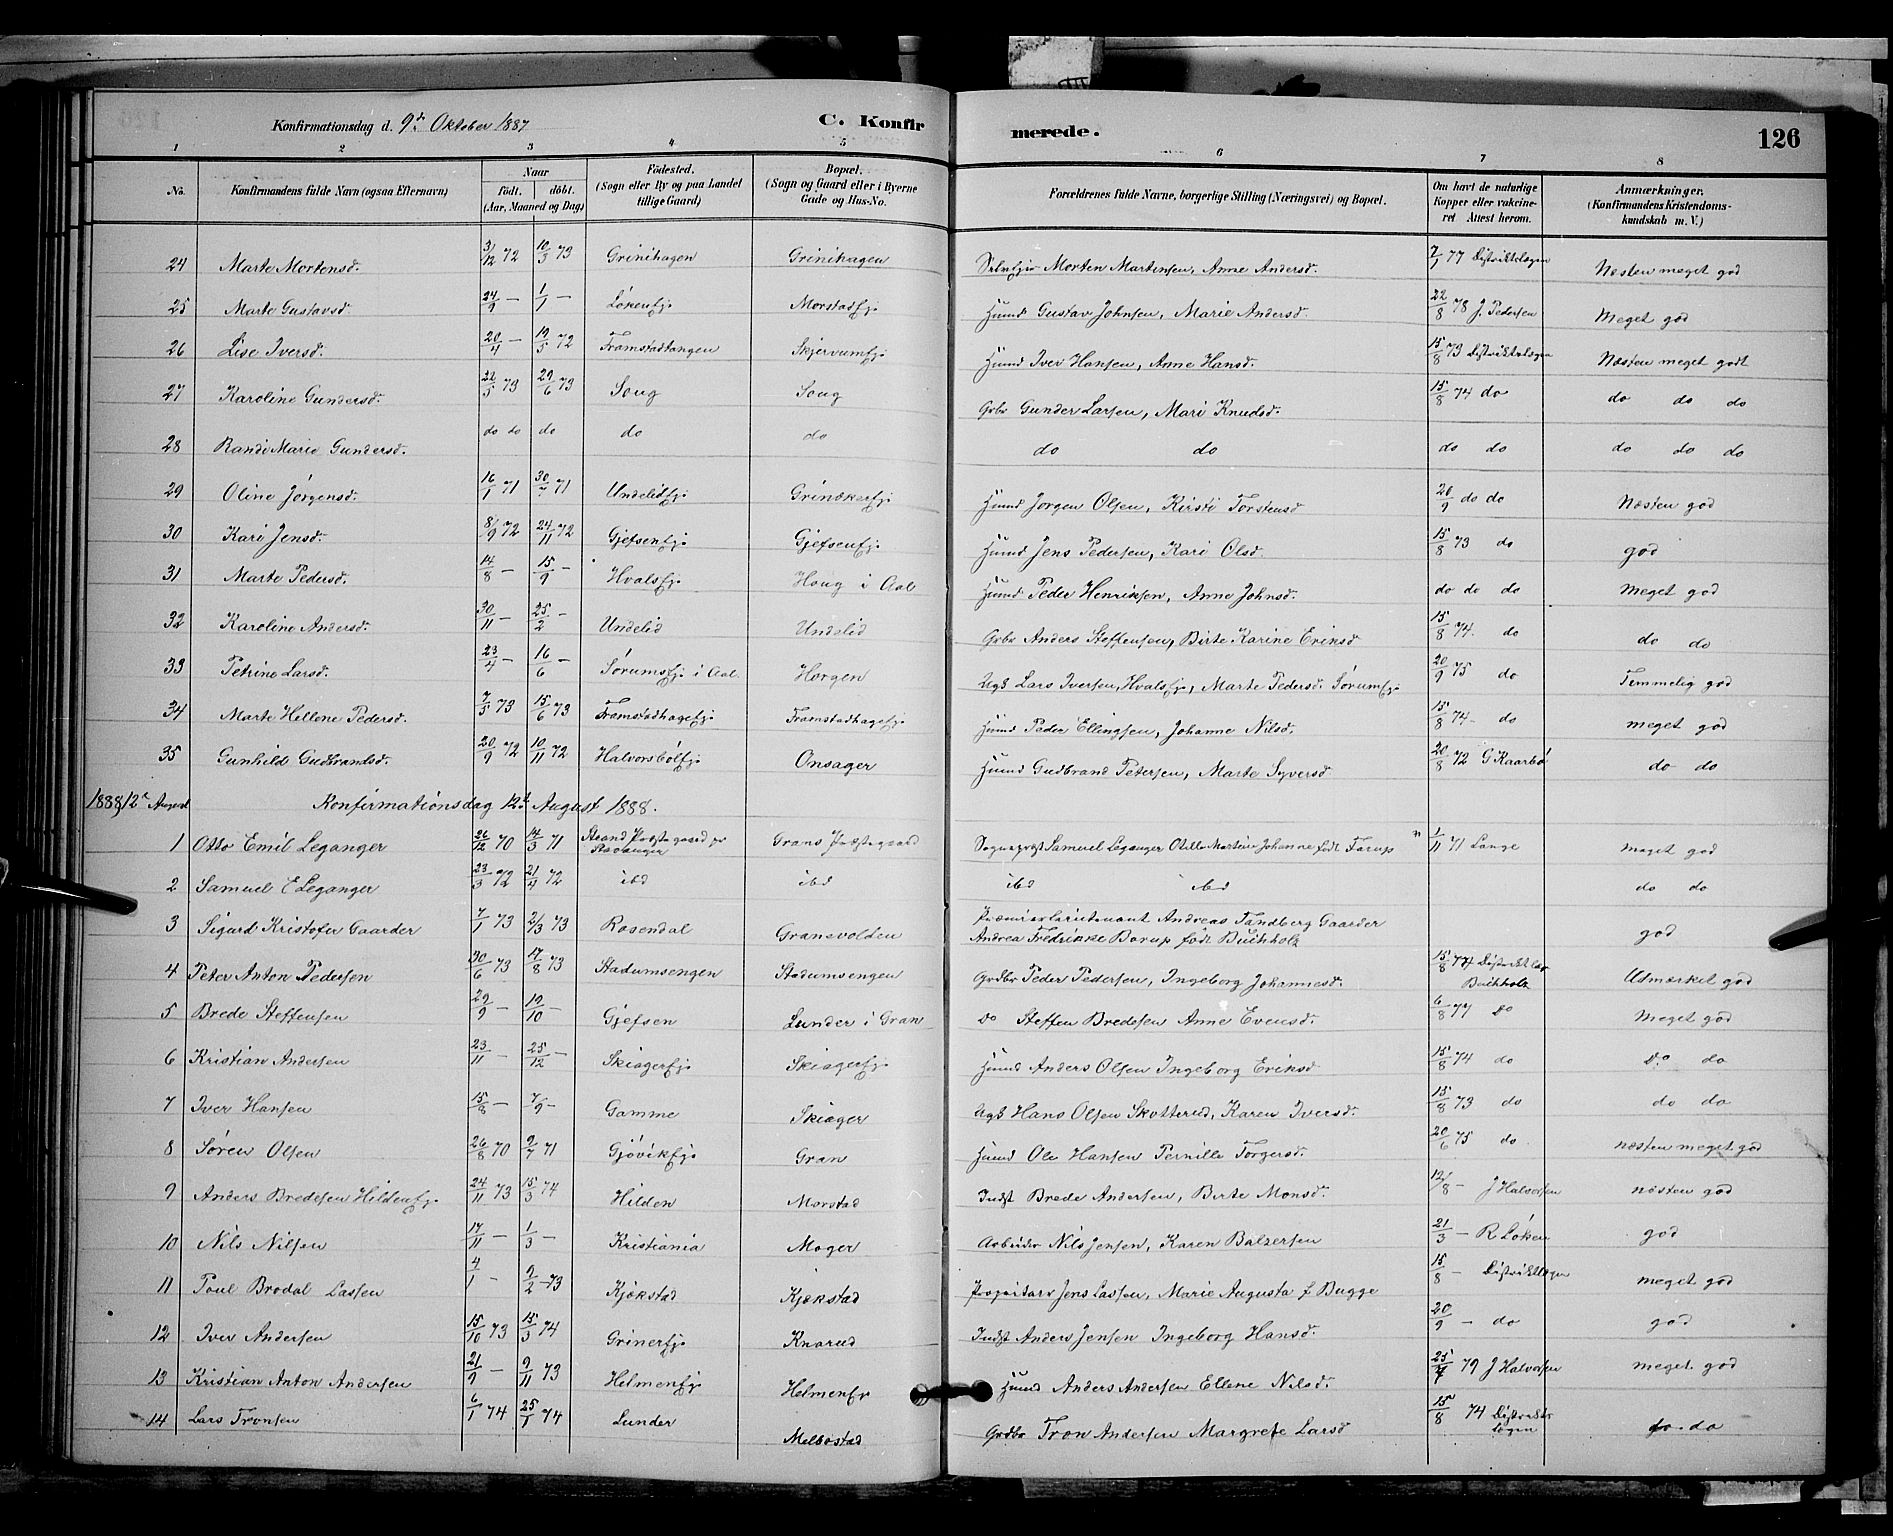 Konfirmationsdag d. 9de Oktober 1887 C. Konfir merede. 126
1 2 3 4 5 6 7 8
No. Konfirmandens fulde Navn (ogsaa Efternavn) Naar födt. döbt. (Aar, Maaned og Dag) Födested. (Sogn eller By og paa Landet tillige Gaard) Bopæl. (Sogn og Gaard eller i Byerne Gade og Hus-No. Forældrenes fulde Navne, borgerlige Stilling (Næringsvei) og Bopæl. Om havt de naturlige Kopper eller vakcineret Attest herom. Anmærkninger. (Konfirmandens Kristendomskundskab m. V.)
24 Marte Mortensd. 31/12 72 10/3 73 Grinihagen Grinihagen Selvejer Morten Martinsen, Anne Andersd. 7/1 77 Distriktslægen Næsten meget god
25 Marte Gustavsd. 24/9 — 1/1 — Lökenejе Morstadeje Husmd Gustav Johnsen, Marie Andersd. 22/8 78 J. Pedersen Meget god
26 Lise Iversd. 20/4 — 19/5 72 Framstadtangen Skjervumeje Husmd Iver Hansen, Anne Hansd. 15/8 73 Distriktslægen Næsten meget godt
27 Karoline Gundersd. 22/5 73 29/6 73 Soug Soug Grbr Gunder Larsen, Mari Knudsd. 15/8 74 do do do do
28 Randi Marie Gundersd. do do do do do do do do do do do do
29 Oline Jörgensd. 16/1 71 30/7 71 Undelideje Grinakereje Husmd Jörgen Olsen, Kirsti Torstensd 20/9 do do Næsten god
30 Kari Jensd. 8/9 72 24/11 72 Gjefseneje Gjefseneje Husmd Jens Pedersen, Kari Olsd. 15/8 73 do god
31 Marte Pedersd. 14/8 — 15/9 — Hvalseje Houg i Aal Husmd Peder Henriksen, Anne Johnsd. do do do Meget god
32 Karoline Andersd. 30/11 — 25/2 — Undelid Undelid Grbr Anders Steffensen, Birte Karine Eriksd 15/8 74. do do do
33 Petrine Larsd. 23/4 — 16/6 — Sörumseje i Aal Horgen Ugk Lars Iversen, Hvalseje, Marte Pedersd. Sörumeje 20/9 75 do Temmelig god
34 Marte Hellene Pedersd. 7/5 73 15/6 73 Framstadhageeje Framstadhageeje Husmd Peder Ellingsen, Johanne Nilsd. 15/8 74 do meget god
35 Gunhild Gudbrandsd. 20/9 72 10/11 72 Halvorsböleje Onsager Husmd Gudbrand Petersen, Marte Syversd 20/8 72 G Kaarbö do do
1888 12te August Konfirmationsdag 12te August 1888.
1 Otto Emil Leganger 26/12 70 14/3 71 Strand Præstegaard pr Stavanger Grans Præstegaard Sogneprest Samuel Leganger Otilie Martine Johanne födt Tarup 1/11 71 Lange meget god
2 Samuel E Leganger 23/3 72 21/4 72 ibd ibd ibd ibd do do
3 Sigurd Kristofer Gaarder 7/1 73 2/3 73 Rosendal Gransvolden Premierlieutenant Andreas Tandberg Gaarder Andrea Fredrikke Borup födt Buchholz god
4 Peter Anton Pedersen 30/6 73 17/8 73 Stadumsengen Stadumsengen Grdbr Peder Pedersen, Ingeborg Johannesd. 15/8 74 Distriktslæ Buchholz Udmærket god
5 Brede Steffensen 29/9 — 19/10 Gjefsen Lunder i Gran Do Steffen Bredesen Anne Evensd. 6/8 77 Do Meget god
6 Kristian Andersen 23/11 — 25/12 — Skiagereje Skiagereje Husmd Anders Olsen Ingeborg Eriksd 15/8 74 do Do do
7 Iver Hansen 15/8 — 7/9 — Gamme Skiager Ugk Hans Olsen Skotterud, Karen Iversd. 15/8 73 do do do
8 Sören Olsen 26/8 70 9/7 71 Gjövikeje Gran Husmd Ole Hansen Pernille Torgersd. 20/6 75 do næsten meget god
9 Anders Bredesen Hildeneje 24/11 73 15/3 74 Hilden Morstad Indst Brede Andersen, Birte Monsd. 12/8 — J Halvorsen næsten god
10 Nils Nilsen 17/11 — 1/3 — Kristiania Moger Arbeider Nils Jensen, Karen Balzersen 21/3 — R Löken god
11 Poul Brodal Lassen 4/1 — 9/2 — 73 Kjækstad Kjækstad Proprietær Jens Lassen, Marie Augusta f Bugge 15/8 — Distriktlægen meget god
12 Iver Andersen 15/10 73 15/3 74 Grinereje Knarud Indst Anders Jensen Ingeborg Hansd. 20/9 — do god
13 Kristian Anton Andersen 21/9 — 9/11 73 Helmeneje Helmeneje Husmd Anders Andersen Ellene Nilsd. 25/7 79 J Halvorsen meget god
14 Lars Tronsen 6/1 74 25/1 74 Lunder Melbostad Grdbr Tron Andersen Margrete Larsd 15/8 74 Distriktslægen do do